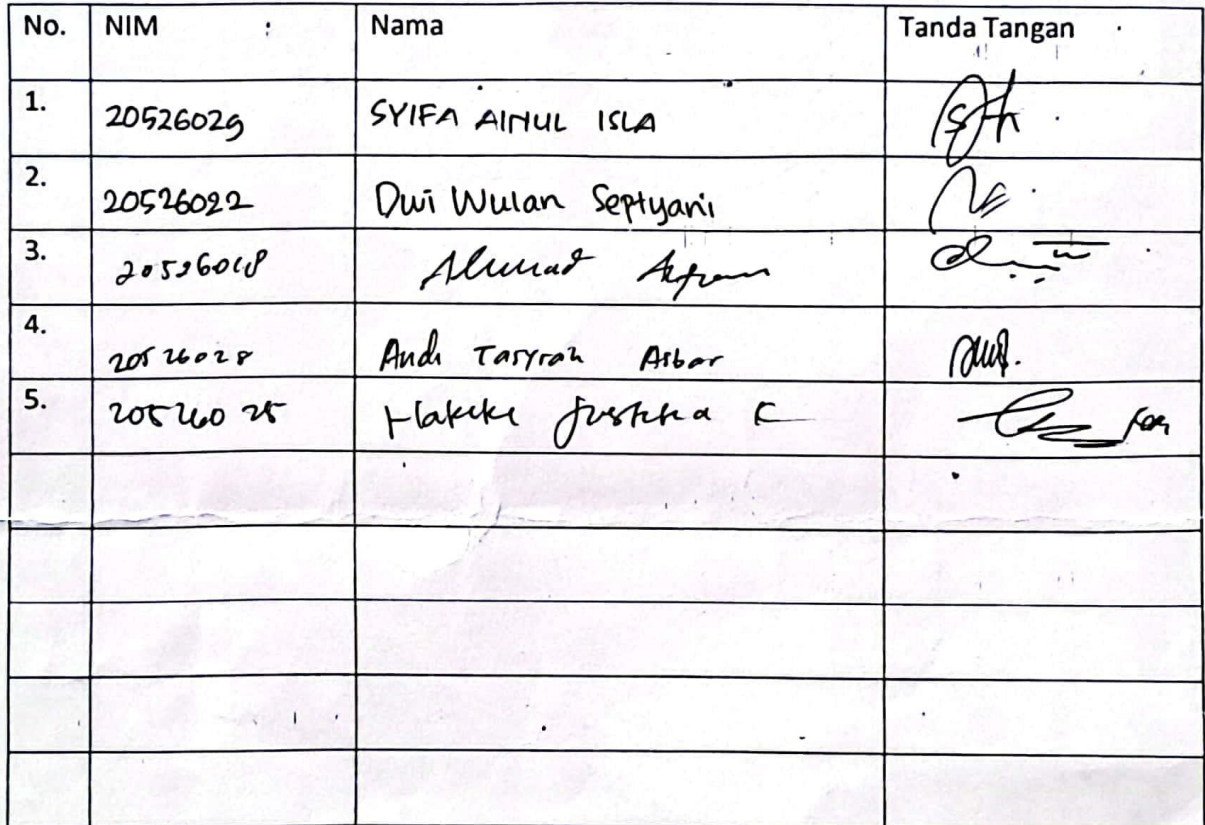 No. NIM : Nama Tanda Tangan
1. 20526029 SYIFA AINUL ISLA
2. 20526022 Dwi Wulan Septyani
3. 20526018 Ahmad
4. 20526028 Andi Tasyrah Asbar
5. 20526025 Hakiki K